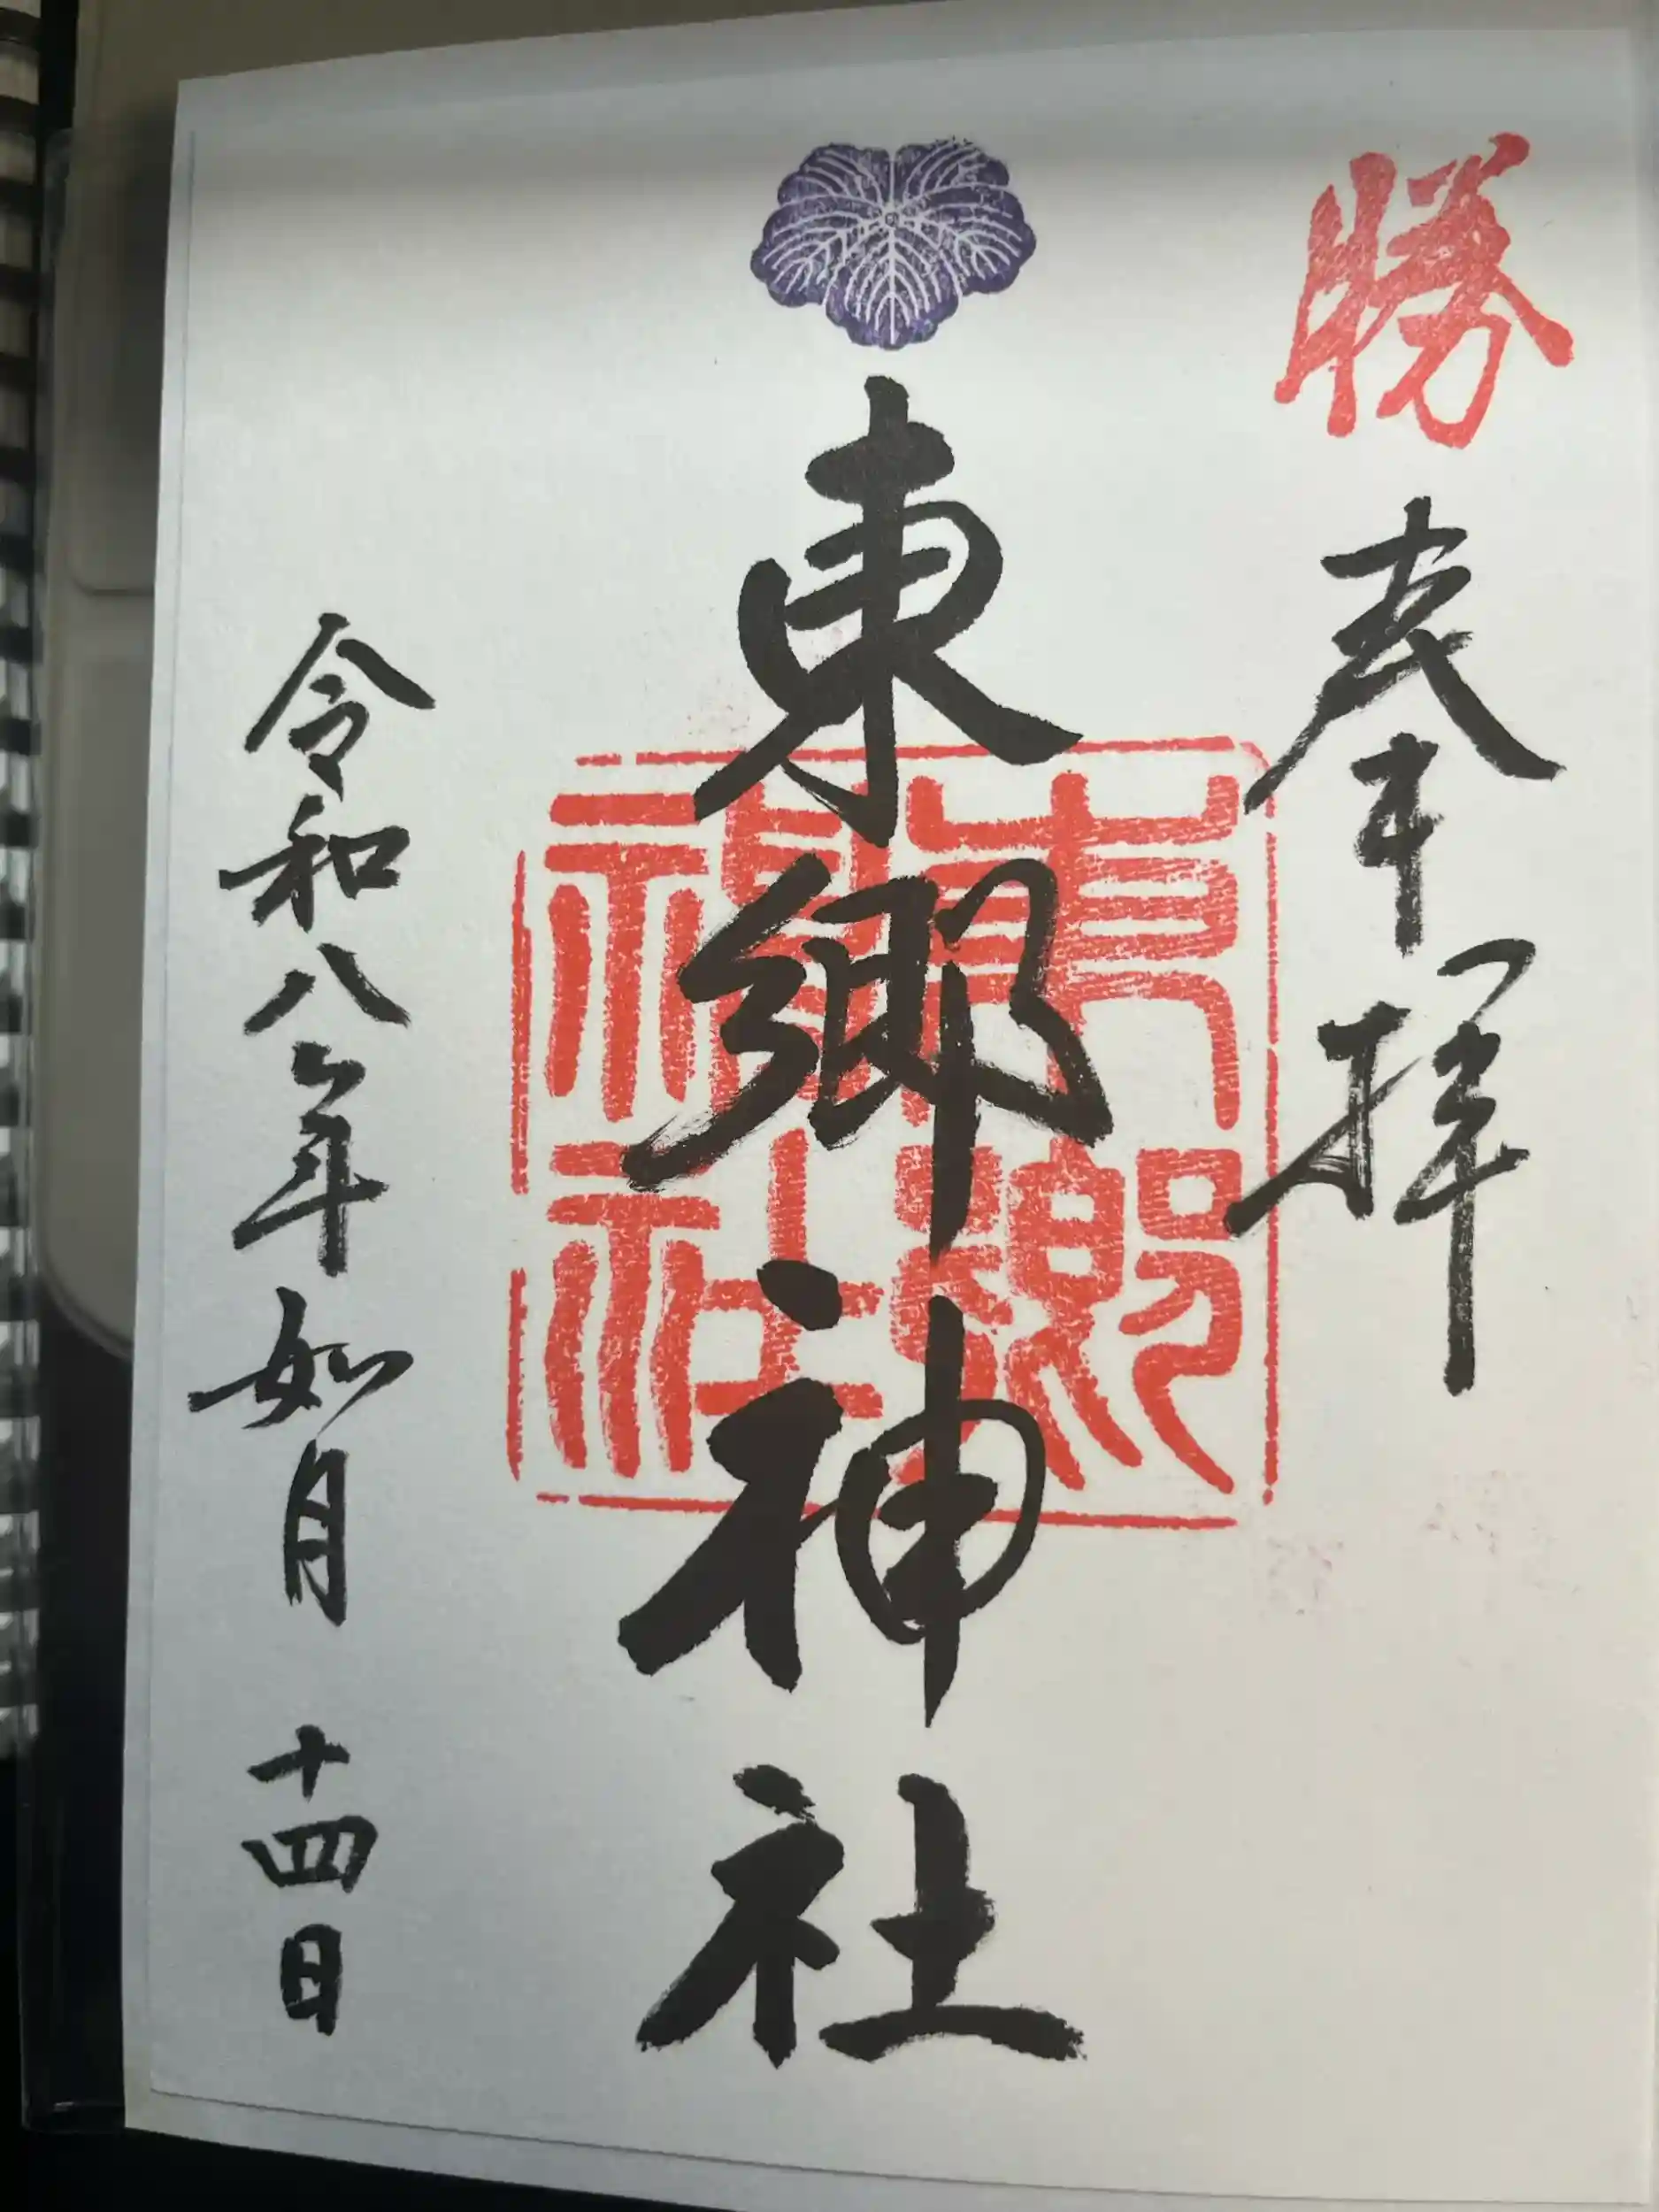 勝
奉拝
東郷神社
東郷神社
令和八年如月十四日